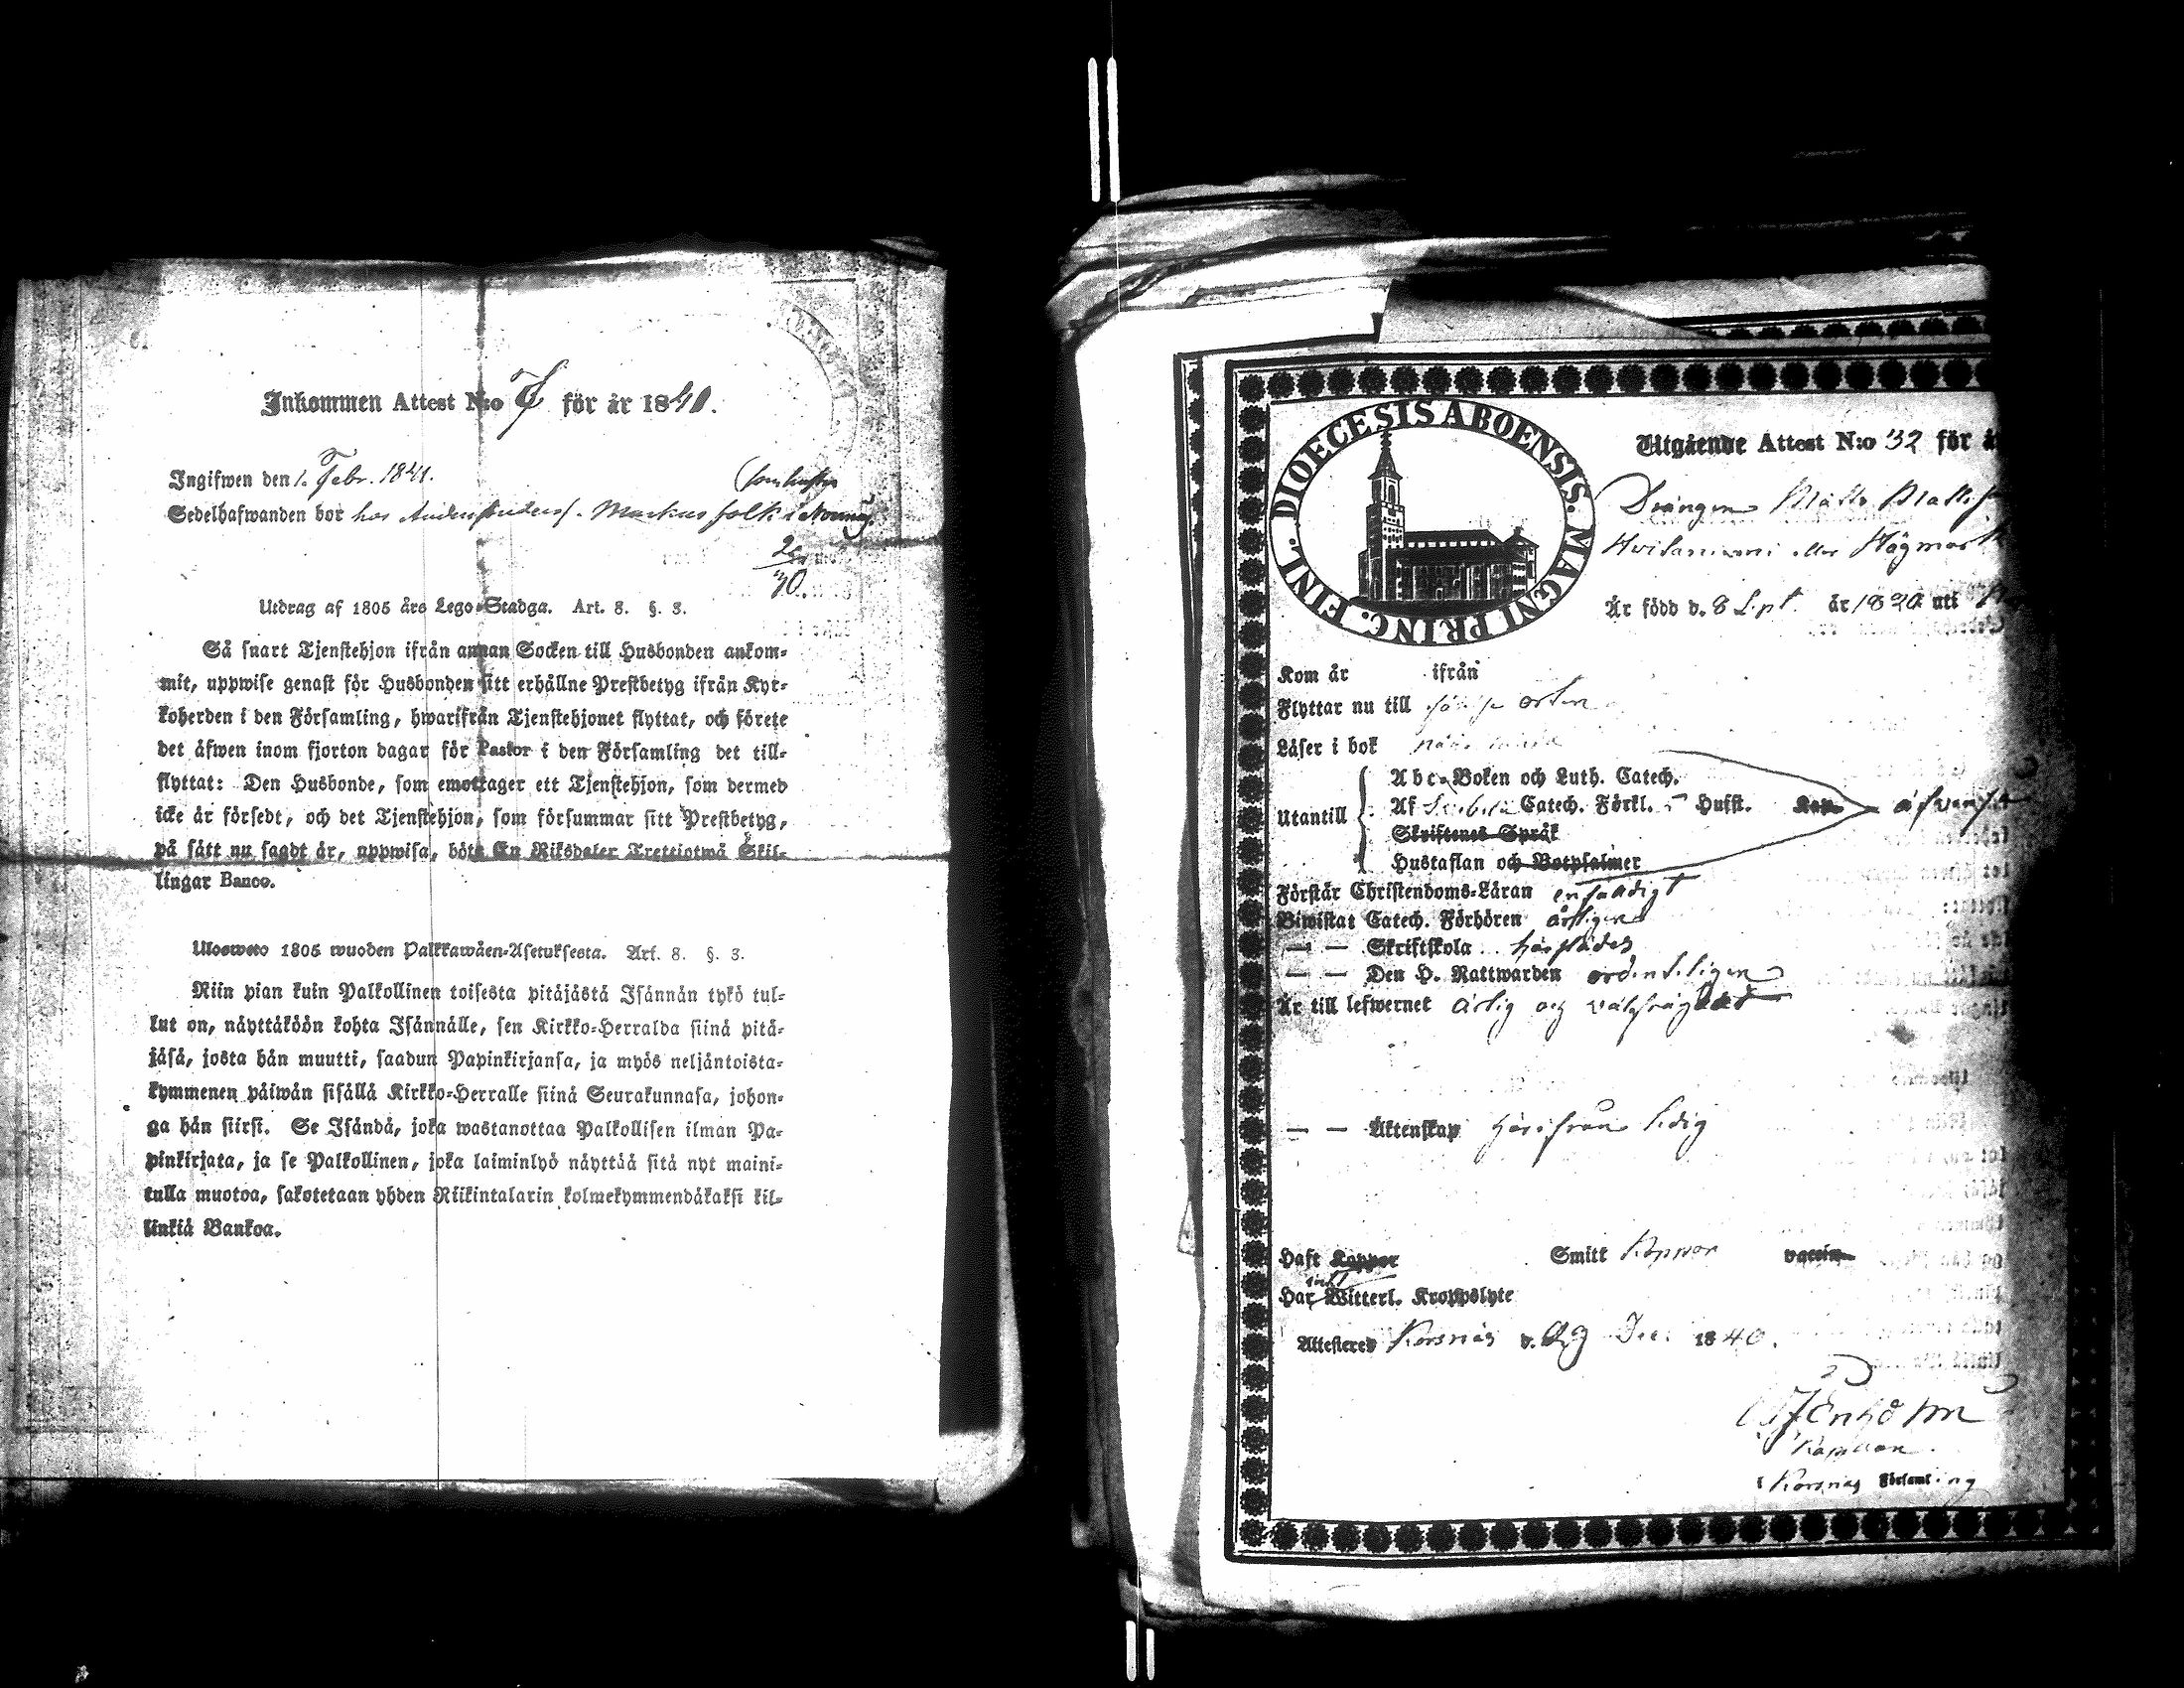 Inkommen Attest N:o 7 för år 1841.
Ingifwen den 1. Febr. 1841.
Sedelhafwanden bor hos Markus folk i
20
Utdrag af 1805 års Lego-Stadga. Art. 8. §. 3.
Så snart Tjenstehjon ifrån annan Socken till Husbonden ankom-
mit, uppwise genast för Husbonden sitt erhållne Prestbetyg ifrån Kyr-
koherden i den Församling, hwarifrån Tjenstehjonet flyttat, och förete
det äfwen inom fjorton dagar för Pastor i den Församling det till-
flyttat: Den Husbonde, som emottager ett Tjenstehjon, som dermed
icke är försedt, och det Tjenstehjon, som försummar sitt Prestbetyg,
på sätt nu sagdt är, uppwisa, böte En Riksdaler Trettiotwå Skil-
lingar Banco.
Ulosweto 1805 wuoden Palkkawäen-Asetuksesta. Art. 8. §. 3.
Niin pian kuin Palkollinen toisesta pitäjästä Isännän tykö tul-
lut on, näyttäköön kohta Isännälle, sen Kirkko-Herralda siinä pitä-
jäsä, josta hän muutti, saadun Papinkirjansa, ja myös neljäntoista-
kymmenen päiwän sisällä Kirkko-Herralle siinä Seurakunnasa, johon-
ga hän siirsi. Se Isändä, joka wastanottaa Palkollisen ilman Pa-
pinkirjata, ja se Palkollinen, joka laiminlyö näyttää sitä nyt maini-
tulla muotoa, sakotetaan yhden Riikintalarin kolmekymmendäkaksi kil-
linkiä Bankoa.
DIOECESIS ABOENSIS. MAGNI PRINC. FINL.
Utgående Attest N:o 32 för å
Drängen Matts Matts
eller Högmar
Är född d. 8 Sept. år 1820 uti
Kom år ifrån
Flyttar nu till orten
Läser i bok
Utantill
Abc-Boken och Luth. Catech.
Af Catech. Förkl. Husst. Kap. äfven
Skriftenes Språk
Hustaflan och Botpsalmer
Förstår Christendoms-Läran enfaldigt
Biwistat Catech. Förhören årligen
— — Skriftskola härstädes
— — Den H. Nattwarden ordenteligen
Är till lefwernet ärlig och välfräjdad
— — Äktenskap härifrån ledig
Haft Koppor Smitt Koppor vaccin
Har intet Witterl. Kroppslyte
Attesterer Korsnäs d. 29 Dec. 1840.
Kapellan
i Korsnäs Församling